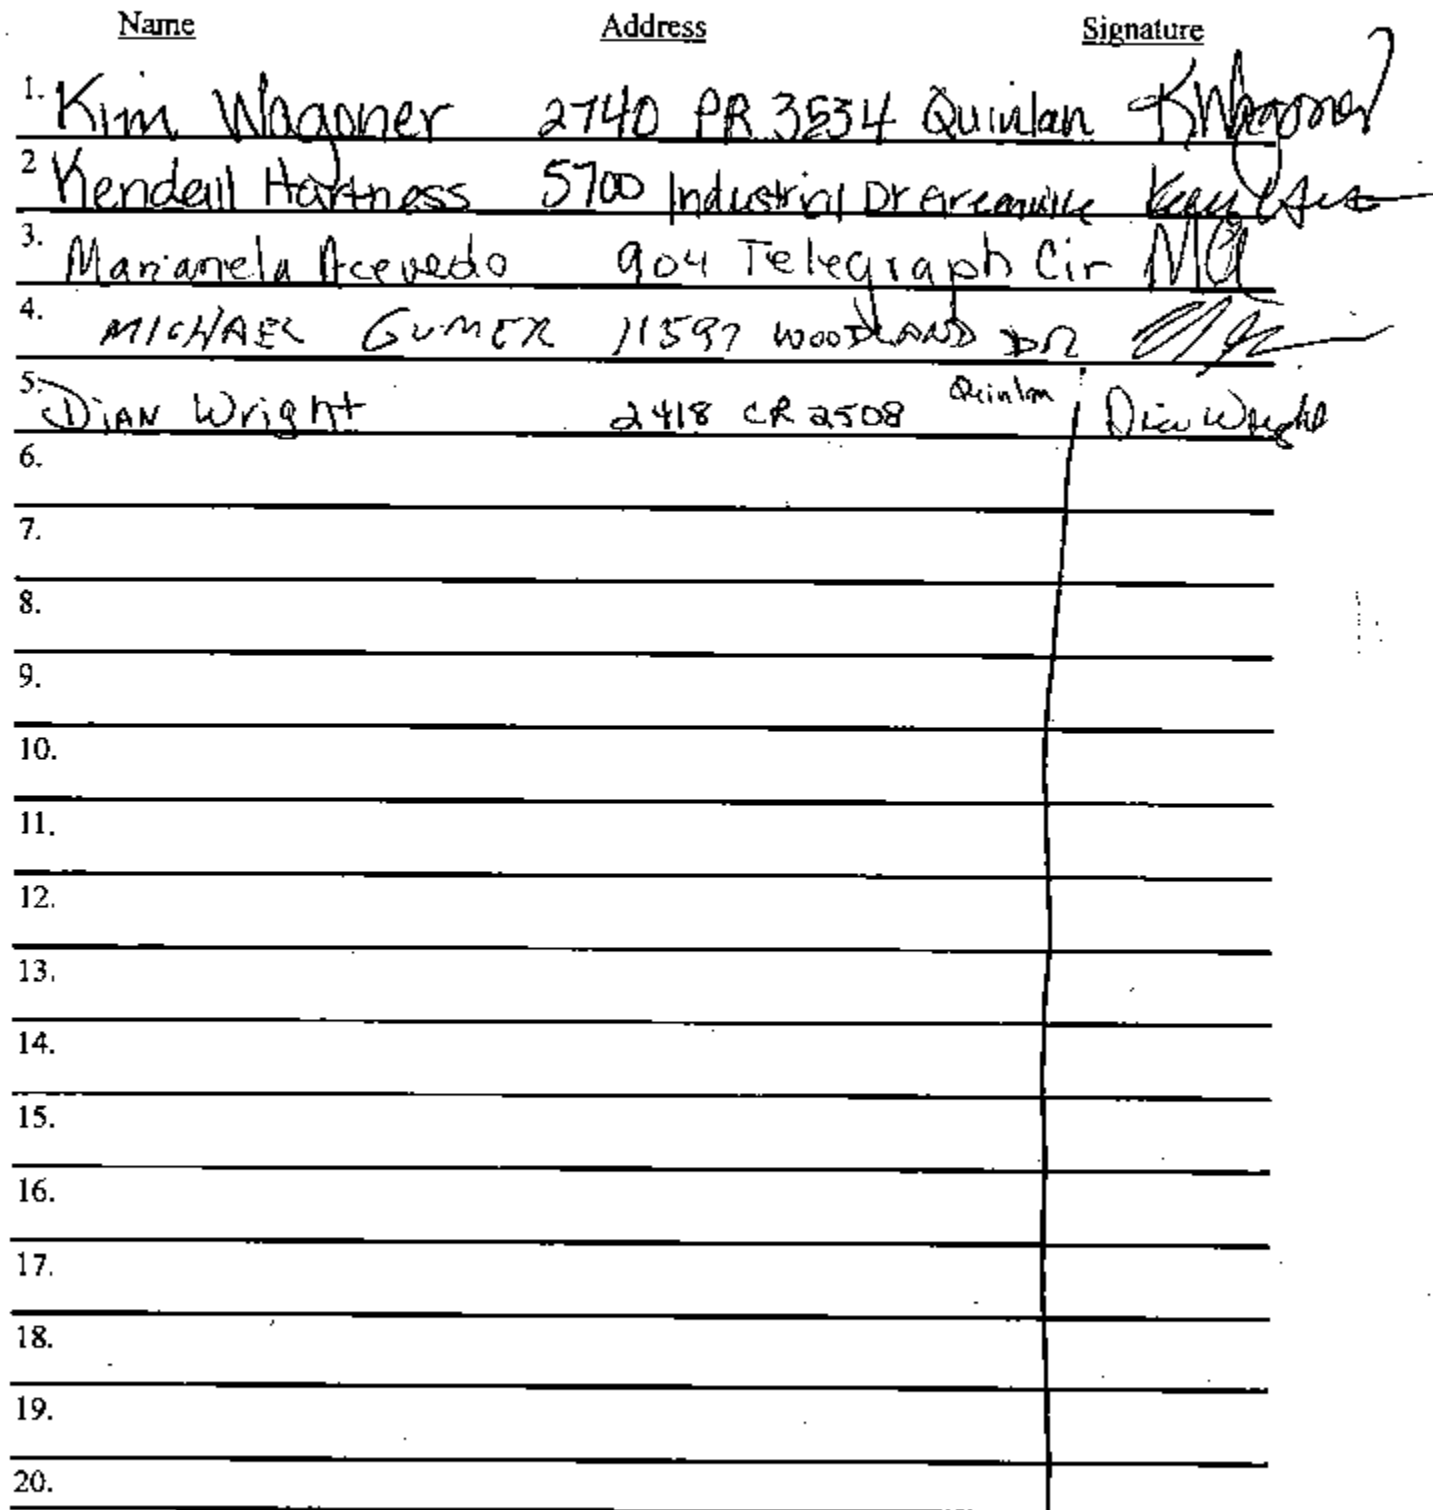 Name Address Signature
1. Kim Wagoner 2740 PR 3534 Quinlan KWagoner
2 Kendall Hartness 5700 Industrial Dr Greenville
3. Marianela Acevedo 904 Telegraph Cir MA
4. MICHAEL GUMER 11597 WOODLAND DR
5. DIAN Wright 2418 CR 2508 Quinlan Dian Wright
6.
7.
8.
9.
10.
11.
12.
13.
14.
15.
16.
17.
18.
19.
20.